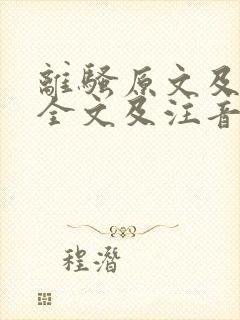 離騷原文及
全文及注音
程潛